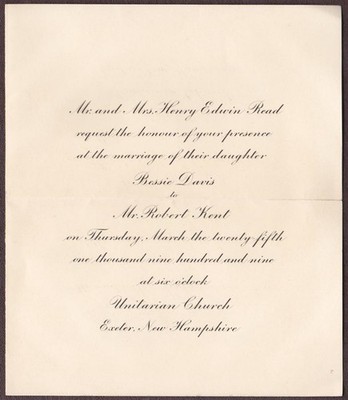 Mr. and Mrs. Henry Edwin Read
request the honour of your presence
at the marriage of their daughter
Bessie Davis
to
Mr. Robert Kent
on Thursday, March the twenty-fifth
one thousand nine hundred and nine
at six o'clock
Unitarian Church
Exeter, New Hampshire